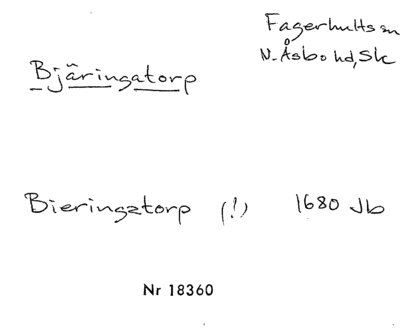 Fagerhults sn
N. Åsbo hd, Sk
Bjäringatorp
Bieringztorp (!) 1680 Jb
Nr 18360